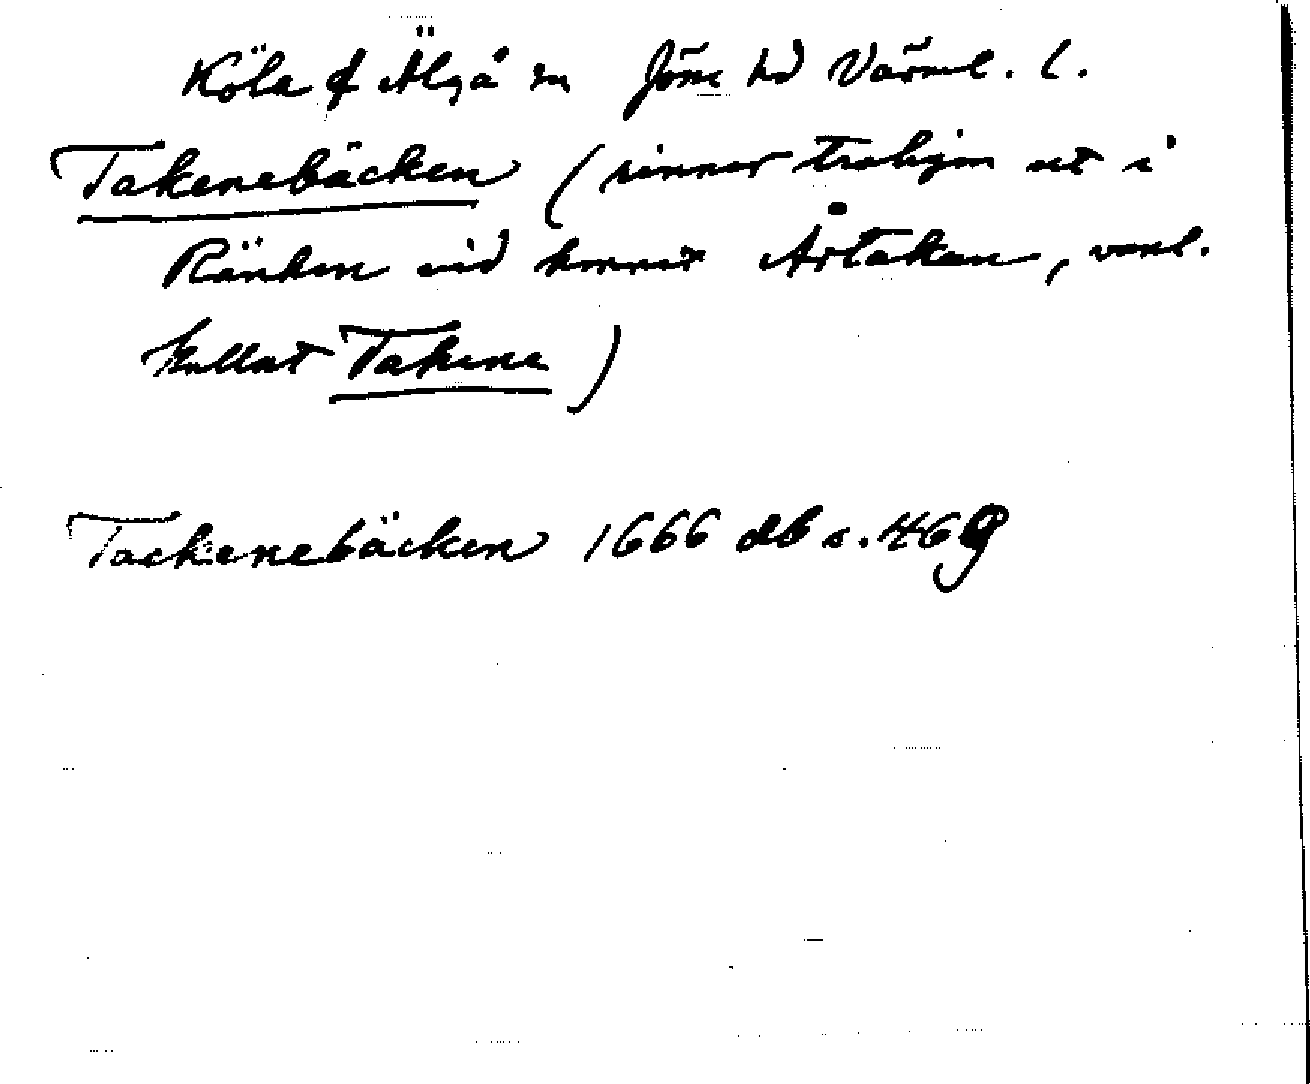 Köla & Älgå sn Jösse hd Värml. l.
Takenebäcken (rinner troligen ut i
Ränken vid hemmet Årtaken, vanl.
kallat Takene)
Tackenebäcken 1666 db s. 469